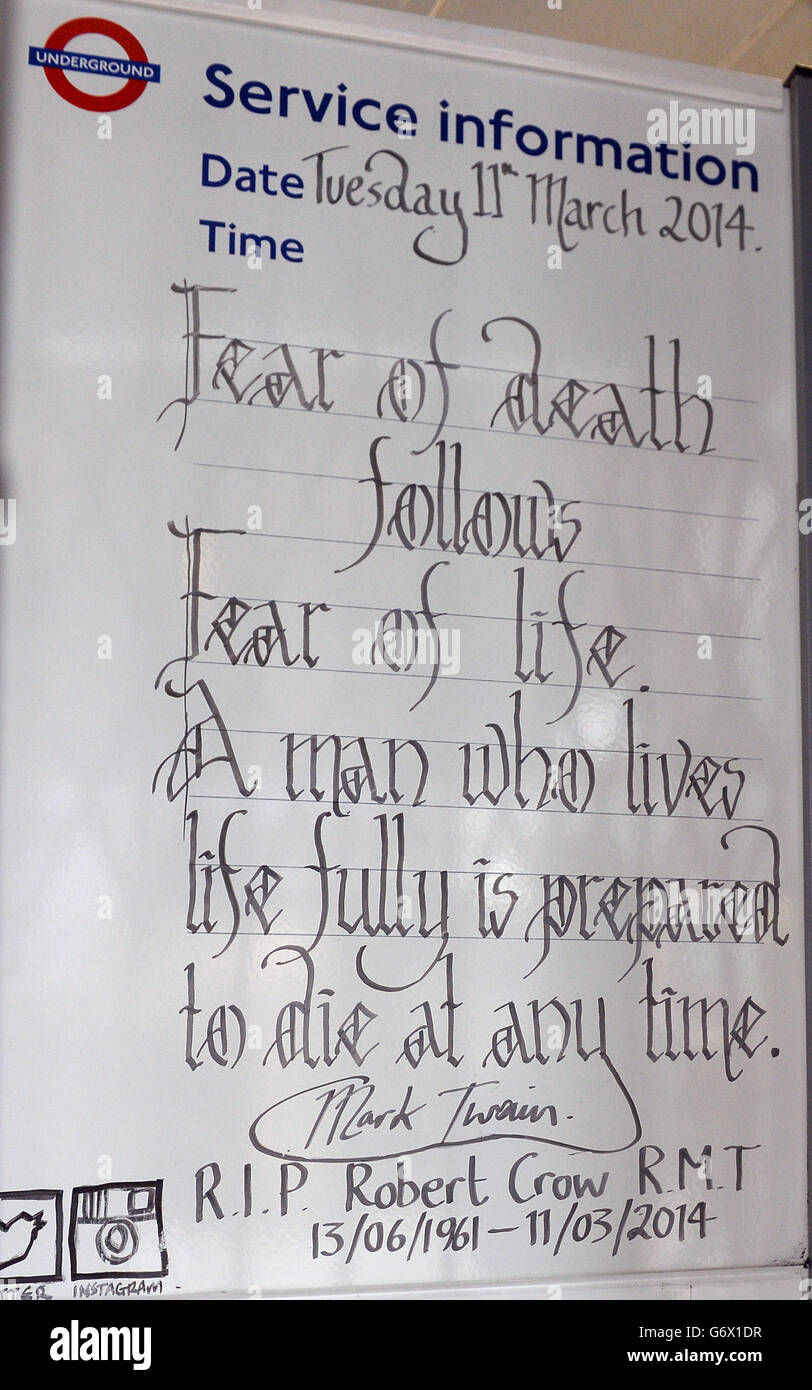 UNDERGROUND
Service information
Date Tuesday 11th March 2014.
Time
Fear of death
follows
Fear of life.
A man who lives
life fully is prepared
to die at any time.
Mark Twain.
R.I.P. Robert Crow R.M.T
13/06/1961 - 11/03/2014
TTER INSTAGRAM
alamy
alamy
Image ID: G6X1DR
www.alamy.com